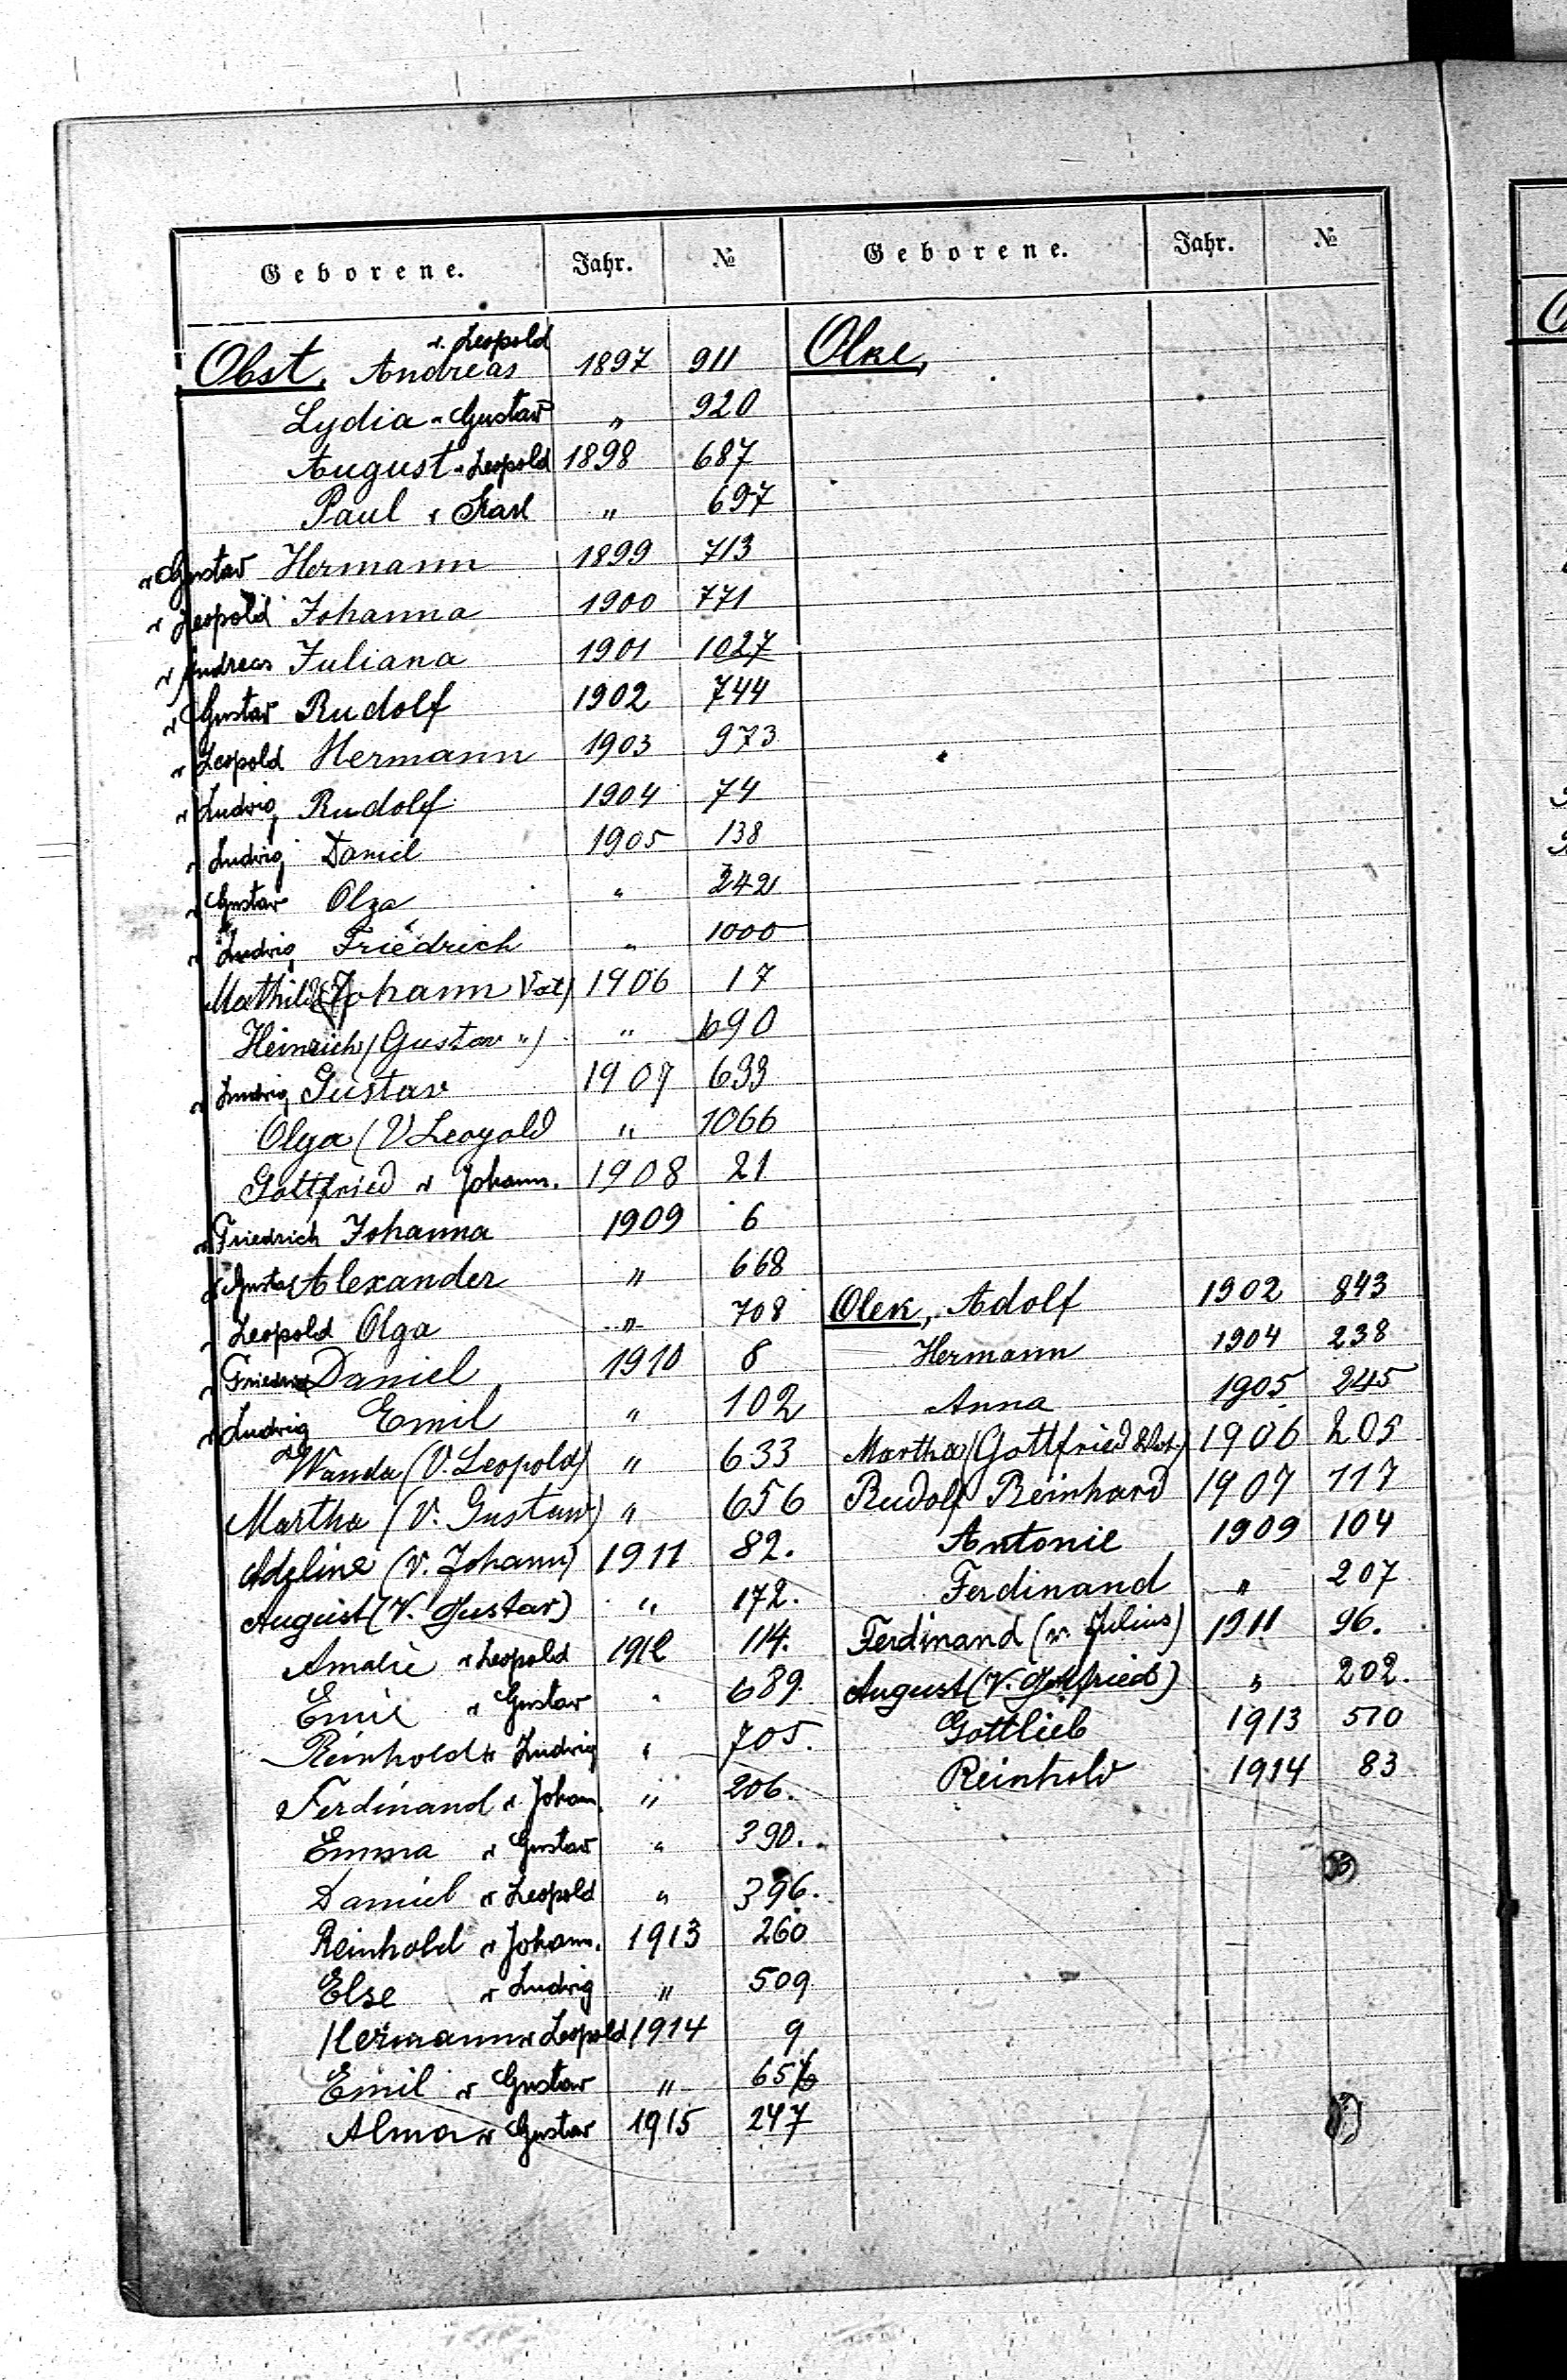 Geborene. Jahr. № Geborene. Jahr. №
v. Leopold
Obst, Andreas 1897 911
Lydia " Gustav " 920
August " Leopold 1898 687
Paul v Karl " 697
v Gustav Hermann 1899 713
v Leopold Johanna 1900 771
v Andreas Juliana 1901 1027
v Gustav Rudolf 1902 744
v Leopold Hermann 1903 973
v Ludwig Rudolf 1904 74
v Ludwig Daniel 1905 138
v Gustav Olga " 242
v Ludwig Friedrich " 1000
Mathild (Johann Vat) 1906 17
Heinrich (Gustav ") " 690
v Ludwig Gustav 1907 633
Olga (V Leopold " 1066
Gottfried v Johann. 1908 21
v Friedrich Johanna 1909 6
v Gustav Alexander " 668
v Leopold Olga " 708
v Friedrich Daniel 1910 8
v Ludwig Emil " 102
Wanda (V. Leopold) " 633
Martha (V. Gustaw) " 656
Adeline (v. Johann) 1911 82.
August (V. Gustav) " 172.
Amalie v Leopold 1912 114.
Emil v Gustav " 689.
Reinhold v Ludwig " 705.
Ferdinand v. Johan. " 206.
Emma v Gustav " 390.
Daniel v Leopold " 396.
Reinhold v Johann. 1913 260
Else v Ludwig " 509
Hermann v Leopold 1914 9
Emil v Gustav " 656
Alma v Gustav 1915 247
Olke,
Olek, Adolf 1902 843
Hermann 1904 238
Anna 1905 245
Martha (Gottfried Vat.) 1906 205
Rudolf Reinhard 1907 117
Antonie 1909 104
Ferdinand " 207
Ferdinand (v. Julius) 1911 96.
August (V. Gottfried) " 202.
Gottlieb 1913 510
Reinhold 1914 83